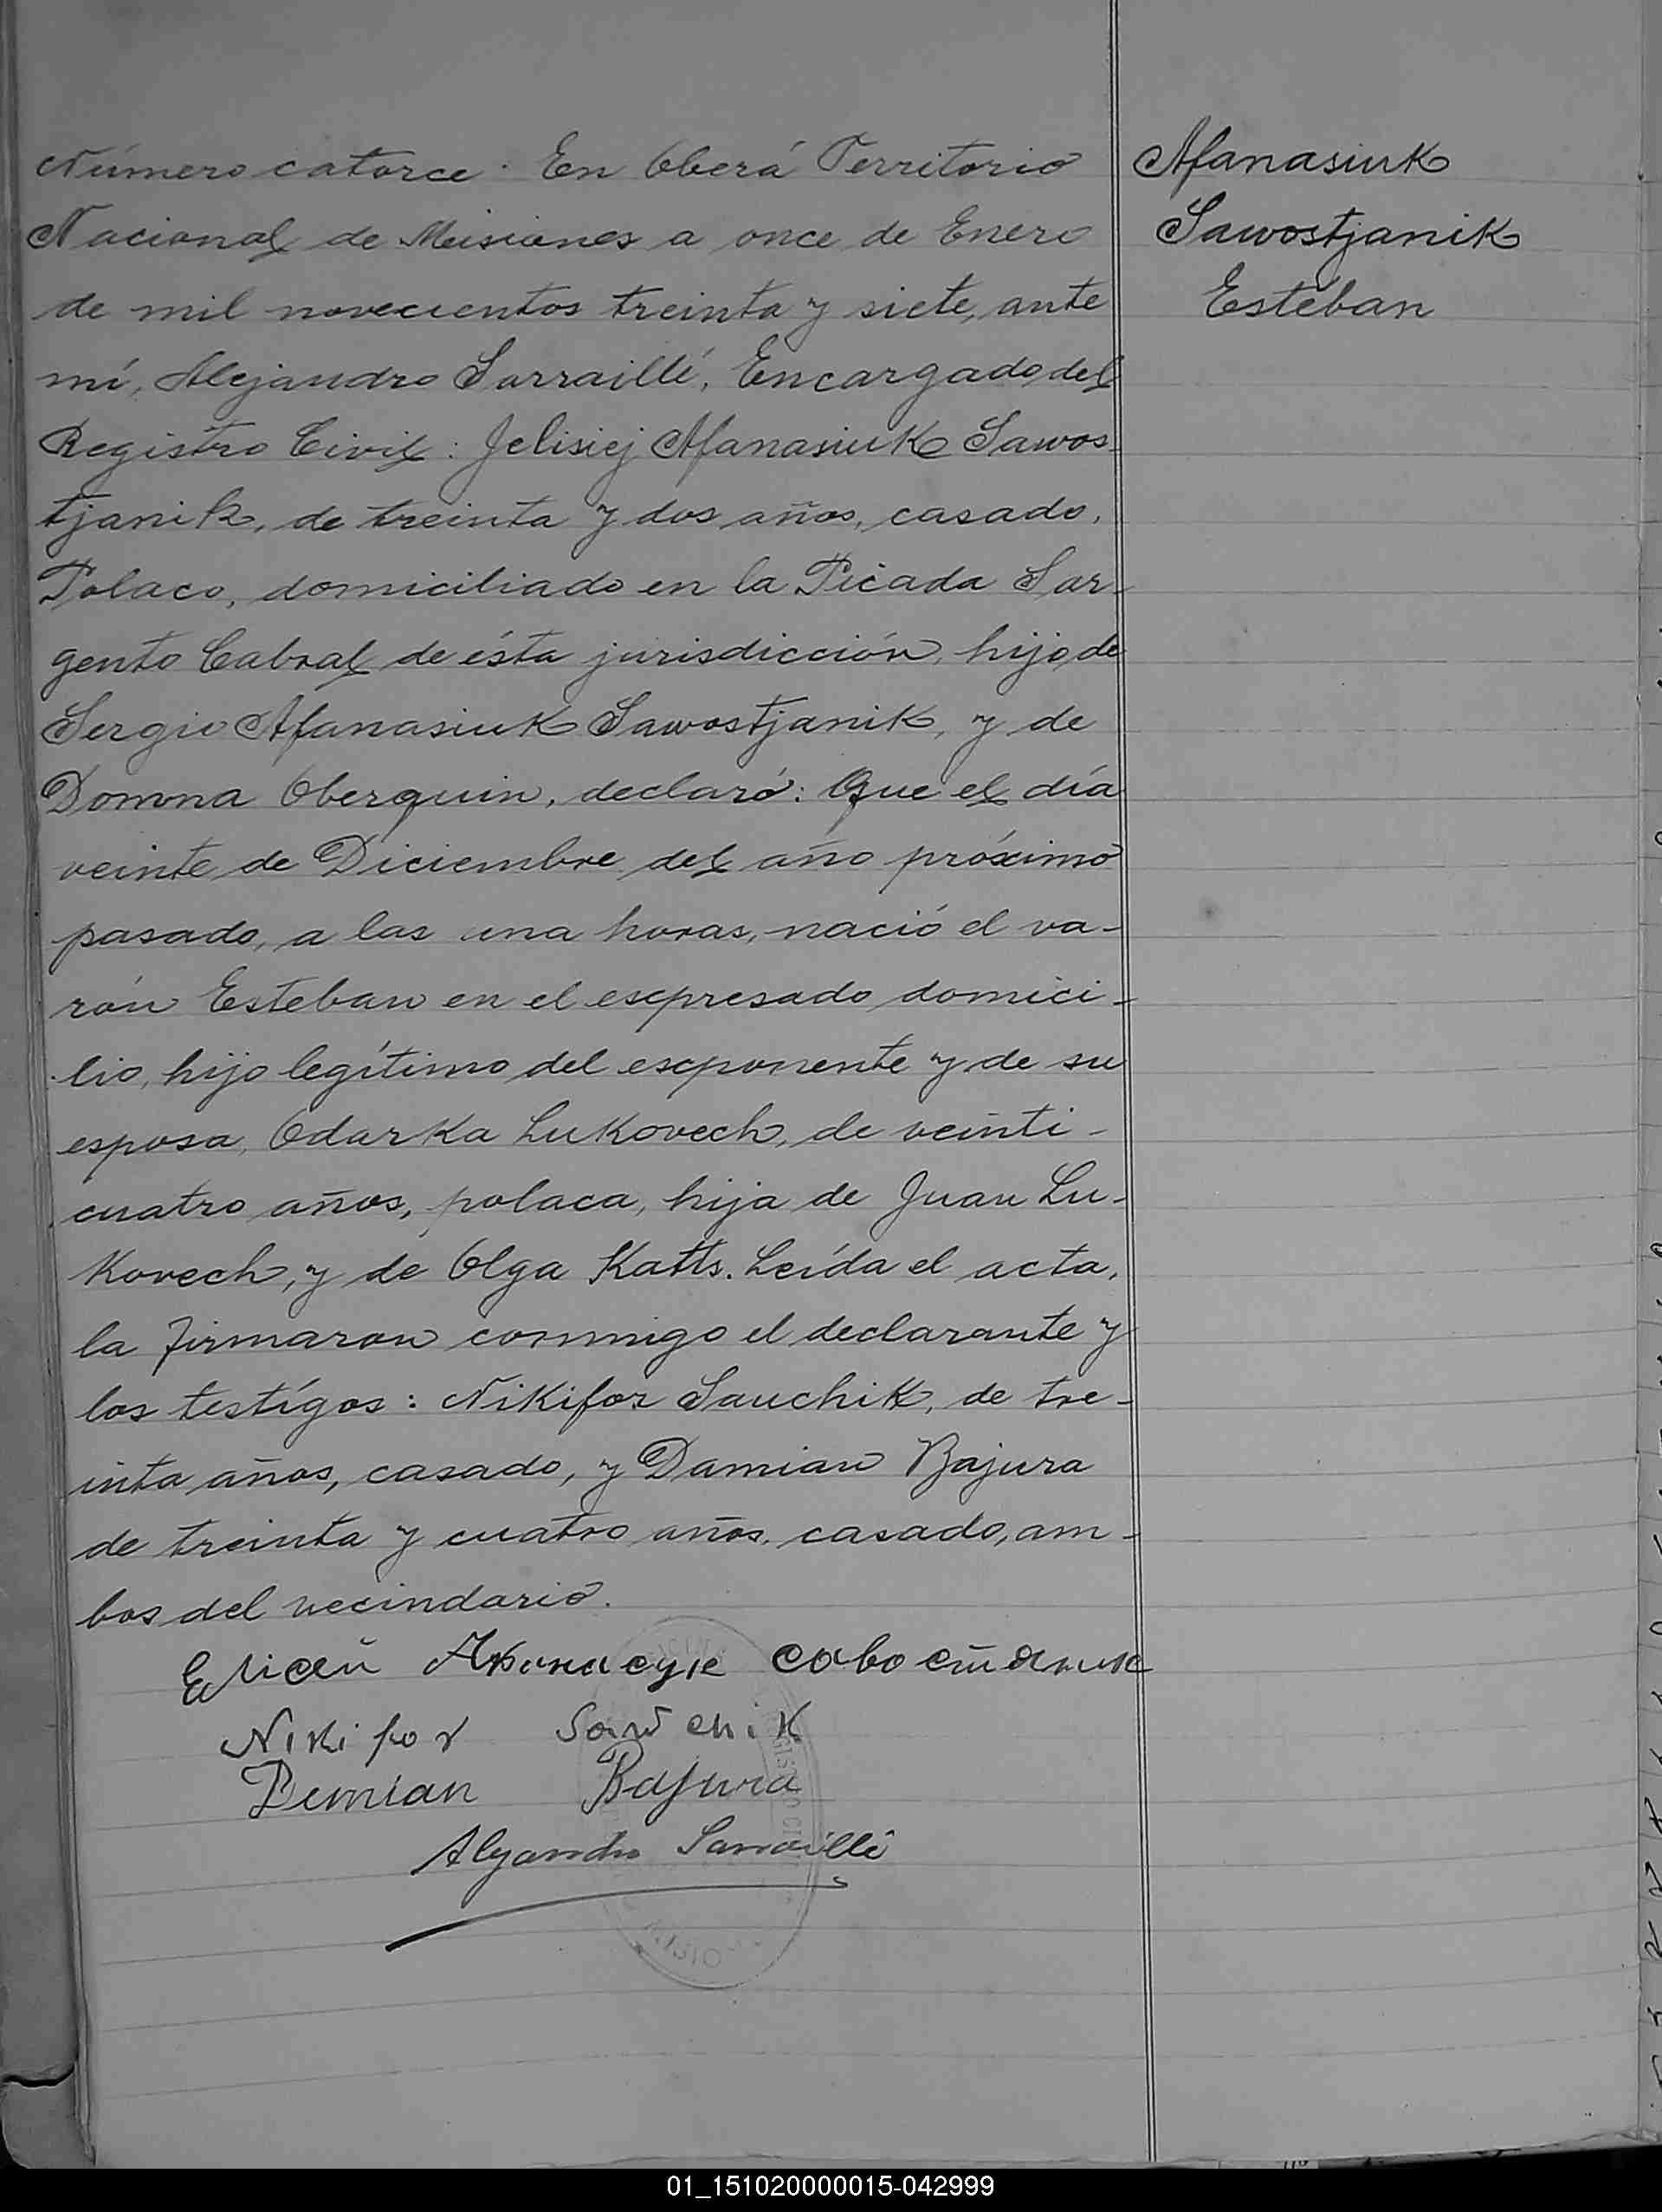 Número catorce. En Oberá Territorio
Nacional de Misiones a once de Enero
de mil novecientos treinta y siete, ante
mí, Alejandro Sarraillé, Encargado del
Registro Civil: Jelisiej Afanasiuk Sawos-
tjanik, de treinta y dos años, casado,
Polaco, domiciliado en la Picada Sar-
gento Cabral de ésta jurisdicción, hijo de
Sergio Afanasiuk Sawostjanik, y de
Domna Oberquin, declaró: Que el día
veinte de Diciembre del año próximo
pasado, a las una horas, nació el va-
rón Esteban en el expresado domici-
lio, hijo legítimo del exponente y de su
esposa, Odarka Lukovech, de veinti-
cuatro años, polaca, hija de Juan Lu-
kovech, y de Olga Katts. Leída el acta,
la firmaron conmigo el declarante y
los testígos: Nikifor Sauchik, de tre-
inta años, casado, y Damian Bajura
de treinta y cuatro años, casado, am-
bos del vecindario.
Afanasiuk
Sawostjanik
Esteban
Елисей
Nikifor Sawchik
Demian Bajura
Alejandro Sarraillé
01_151020000015-042999